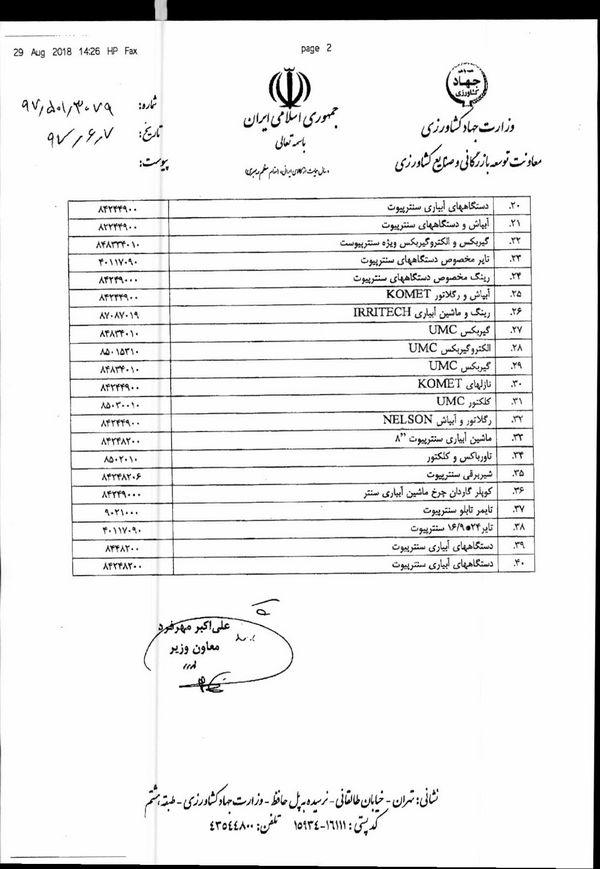 29 Aug 2018 14:26 HP Fax page 2
جهاد
کشاورزی
جمهوری اسلامی ایران
باسمه تعالی
وزارت جهاد کشاورزی
معاونت توسعه بازرگانی و صنایع کشاورزی
شماره:
تاریخ: ۹۷/۶/۷
پیوست:
۲۰. دستگاههای آبیاری سنترپیوت ۸۴۲۴۴۹۰۰
۲۱. آبپاش و دستگاههای سنترپیوت ۸۲۲۴۴۹۰۰
۲۲. گیربکس و الکتروگیربکس ویژه سنترپیوست ۸۴۸۳۳۴۰۱۰
۲۳. تایر مخصوص دستگاههای سنترپیوت ۴۰۱۱۷۰۹۰
۲۴. رینگ مخصوص دستگاههای سنترپیوت ۸۴۲۴۹۰۰۰
۲۵. آبپاش و رگلاتور KOMET ۸۴۲۴۴۹۰۰
۲۶. رینگ و ماشین آبیاری IRRITECH ۸۷۰۸۷۰۱۹
۲۷. گیربکس UMC ۸۴۸۳۴۰۱۰
۲۸. الکتروگیربکس UMC ۸۵۰۱۵۳۱۰
۲۹. گیربکس UMC ۸۴۸۳۴۰۱۰
۳۰. نازلهای KOMET ۸۴۲۴۴۹۰۰
۳۱. کلکتور UMC ۸۵۰۳۰۰۱۰
۳۲. رگلاتور و آبپاش NELSON ۸۴۲۴۴۹۰۰
۳۳. ماشین آبیاری سنترپیوت ۸" ۸۴۲۴۸۲۰۰
۳۴. تاورباکس و کلکتور ۸۵۰۲۰۱۰
۳۵. شیربرقی سنترپیوت ۸۴۲۴۸۲۰۶
۳۶. کوپلر گاردان چرخ ماشین آبیاری سنتر ۸۴۲۴۹۰۰۰
۳۷. تایمر تابلو سنترپیوت ۹۰۲۱۰۰۰
۳۸. تایر ۲۴*۱۶/۹ سنترپیوت ۴۰۱۱۷۰۹۰
۳۹. دستگاههای آبیاری سنترپیوت ۸۴۴۸۲۰۰
۴۰. دستگاههای آبیاری سنترپیوت ۸۴۲۴۸۲۰۰
علی اکبر مهرفرد
معاون وزیر
نشانی: تهران - خیابان طالقانی - نرسیده به پل حافظ - وزارت جهاد کشاورزی - طبقه هشتم
کد پستی: ۱۶۱۱۱-۱۵۹۳۴ تلفن: ۴۳۵۴۴۸۰۰